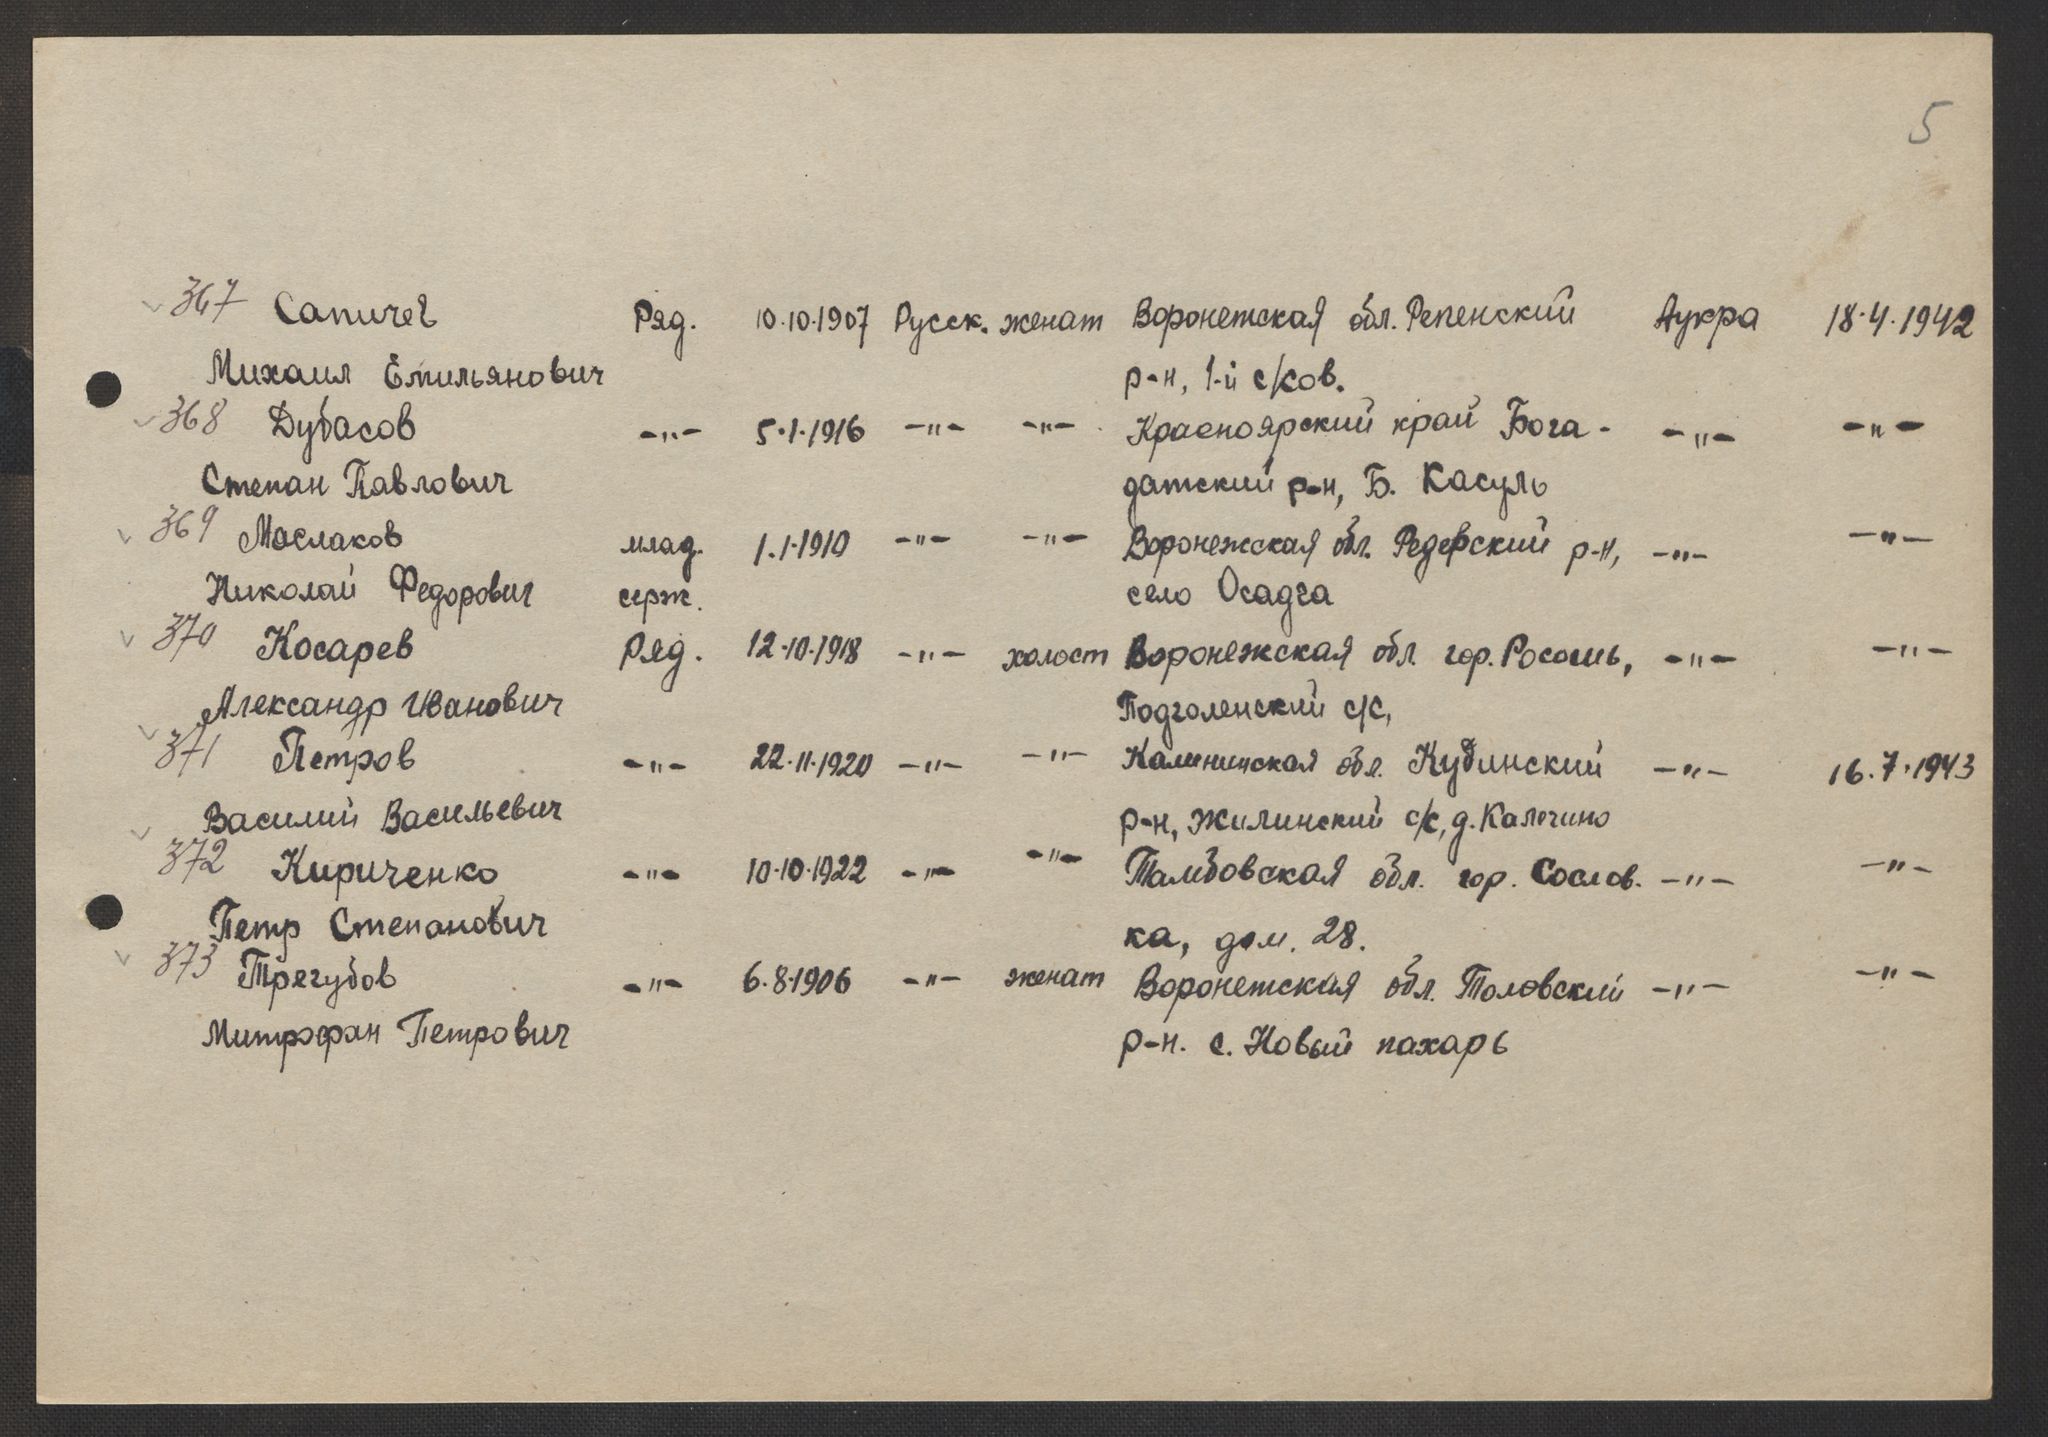 5
367 Сапичев Ряд. 10.10.1907 Русск. женат Воронетская обл. Репенский Аукра 18.4.1942
Михаил Емильянович р-н, 1-й с/ков.
368 Дубасов -"- 5.1.1916 -"- -"- Красноярский край Бога-
-"- -"-
Степан Павлович датский р-н, Б. Касуль
369 Маслаков млад. 1.1.1910 -"- -"- Воронежская обл. Редефский р-н, -"- -"-
Николай Федорович серж. село Осадга
370 Косарев Ряд. 12.10.1918 -"- холост Воронежская обл. гор. Росошь, -"- -"-
Александр Иванович Подголенский с/с,
371 Петров -"- 22.11.1920 -"- -"- Калининская обл. Кудинский -"- 16.7.1943
Василий Васильевич р-н, Жилинский с/с, д. Калечино
372 Кириченко -"- 10.10.1922 -"- -"- Тамбовская обл. гор. Сослов. -"- -"-
Петр Степанович ка, дом. 28.
373 Трегубов -"- 6.8.1906 -"- женат Воронетская обл. Толовский -"- -"-
Митрофан Петрович р-н. с. Новый пахарь